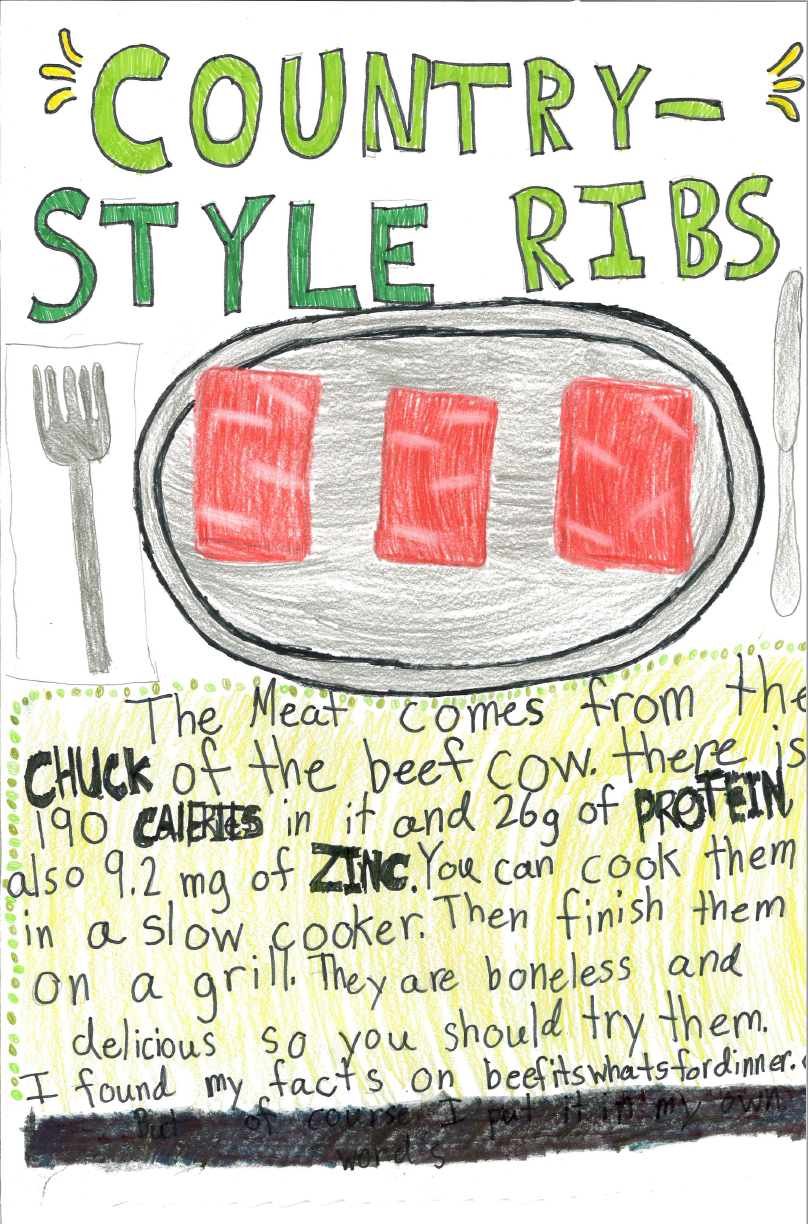 COUNTRY-
STYLE RIBS
The Meat comes from the
CHUCK of the beef cow. there is
190 CALERIES in it and 26g of PROTEIN
also 9.2 mg of ZINC. You can cook them
in a slow cooker. Then finish them
on a grill. They are boneless and
delicious so you should try them.
I found my facts on beefitswhatsfordinner.
But of course I put it in my own
words